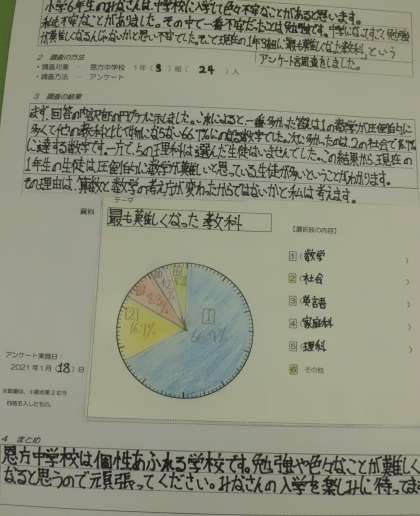 小学6年生のみなさんは、中学校に入学して色々不安なことがあると思います。
私も不安なことがありました。その中で一番不安だったことは勉強です。中学になって
が難しくなるんじゃないかと思い不安でした。そこで現在の1年3組に「最も難しくなった教科」という
アンケート調査をしました。
2 調査の方法
・調査対象 － 恩方中学校 1年(3)組(24)人
・調査方法 － アンケート
3 調査の結果
まず、回答の内容を
多くて他の教科とくらべ物にならない66.7%
に達する教科です。一方で、5の理科は選んだ生徒はいませんでした。この結果から、現在の
1年生の生徒は、圧倒的に数学が難しいと思っている生徒が多いということがわかります。
その理由は、算数と数学の考え方が変わったからではないかと私は考えます。
資料
テーマ
最も難しくなった教科
【選択肢の内容】
1 (数学)
2 (社会)
3 (英語)
4 (家庭科)
5 (理科)
6 その他
[1]
66.7%
[2]
16.7%
アンケート実施日
2021年1月(18)日
4 まとめ
恩方中学校は個性あふれる学校です。勉強や色々なことが難しく
なると思うので頑張ってください。みなさんの入学を楽しみに待ってま